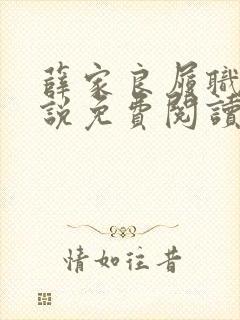 薛家良履職
說免費閱讀
情如往昔